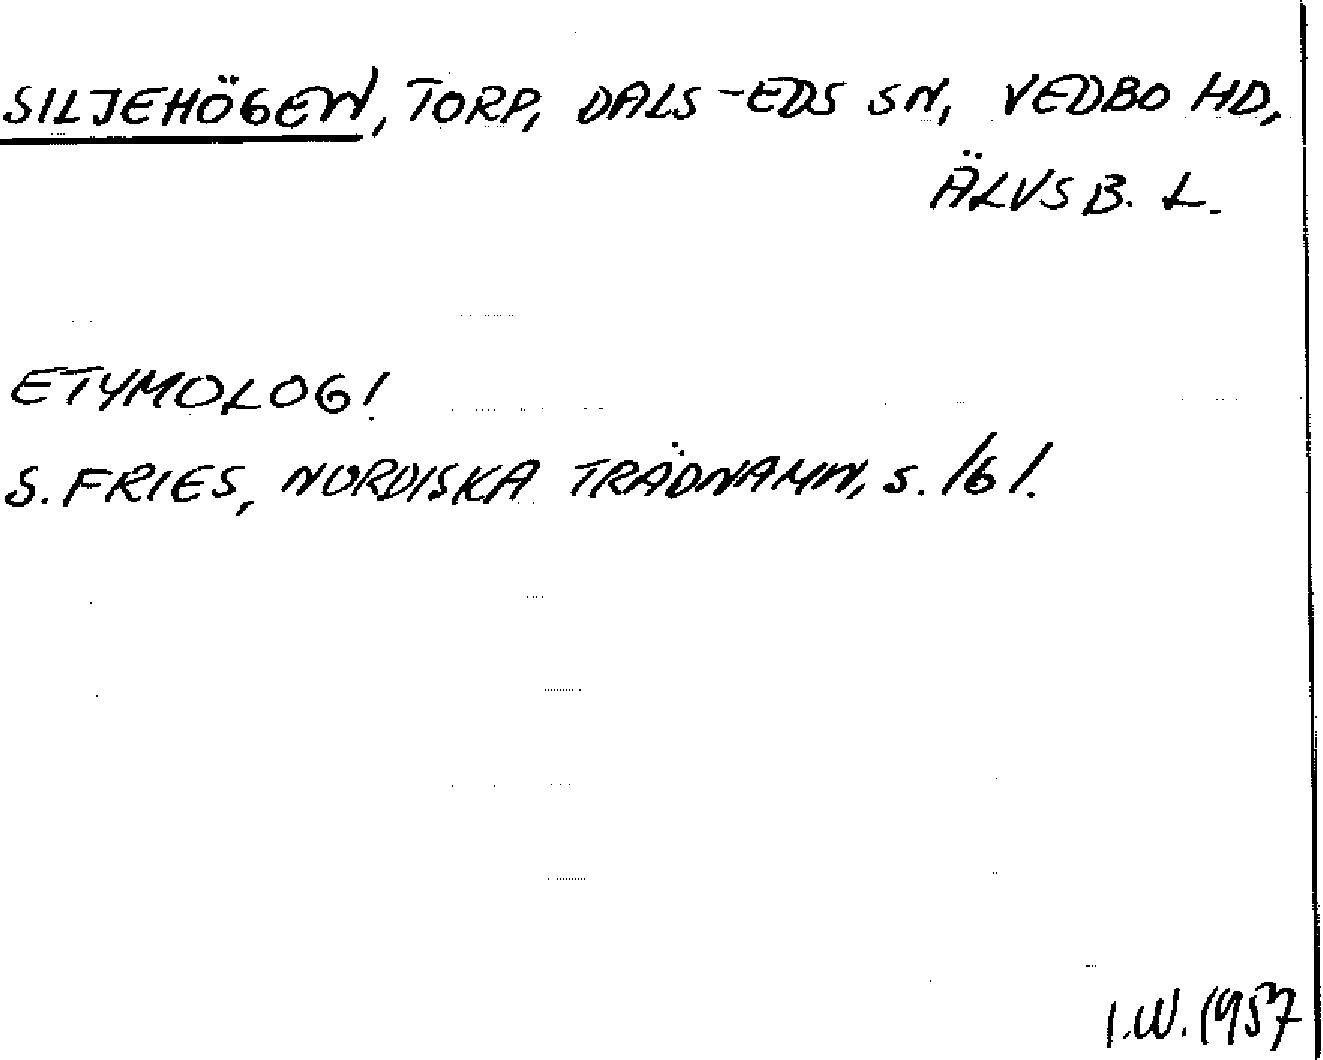 SILJEHÖGEN, TORP, DALS-EDS SN, VEDBO HD,
ÄLVSB. L.
ETYMOLOGI
S. FRIES, NORDISKA TRÄDNAMN, S. 161.
I.W. 1957